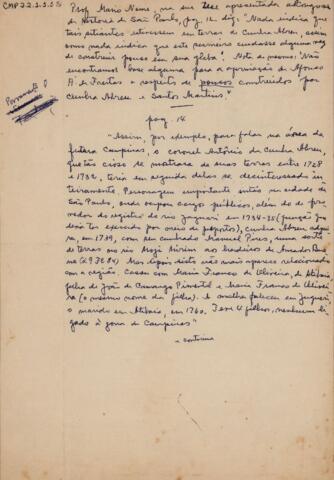 CMP 22.2.3.55
Prof. Mario Neme, na sua tese apresentada
Historia de São Paulo, pag. 12, diz: "Nada indica que
tais sitiantes estivessem em terras da Cunha Abreu, assim
como nada indica que este perneiro cuidasse alguma vez
de construir pouso em sua gleba". Nota do mesmo: "Não
encontramos base alguma para a afirmação de Afonso
A. de Freitas a respeito de pousos construidos por
Cunha Abreu e Santos Martins."
pag. 14
"Assim, por exemplo, para falar na área da
futura Campinas, o coronel Antônio da Cunha Abreu,
que tão cioso se mostrara de suas terras entre 1728
e 1732, teria em seguida delas se desinteressado in-
teiramente. Personagem importante então na cidade de
São Paulo, onde ocupou cargos públicos, além do de pro-
vedor do registro do rio Jaguari em 1734-35 (função que
deve ter exercido por meio de prepostos), Cunha Abreu adqui-
riu, em 1739, com seu cunhado Manuel Peres, uma sorte
de terras no rio Mogi Mirim aos herdeiros de Amador Bueno
Mas depois disto não mais aparece relacionado
com a região. Casou com Maria Franco de Oliveira, de Atibaia,
filha de João de Camargo Pimentel e Maria Franco de Olivei-
ra (o mesmo nome da filha). A mulher faleceu em Juqueri
o marido em Atibaia, em 1760. Tem 4 filhos, nenhum li-
gado à zona de Campinas"
- continua